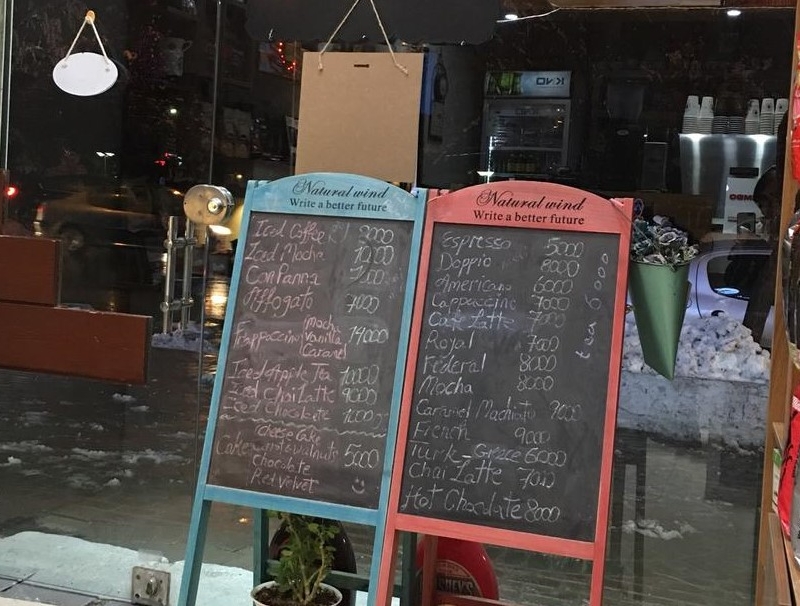 Natural wind
Write a better future
Iced Coffee 9000
Iced Mocha 10,00
Conpanna 7000
Affogato 7000
Frappaccino mocha vanilla Caramel 14000
Iced Apple Tea 10000
Iced Chai Latte 9000
Iced Chocolate 10000
Cake cheese Cake
carrot & walnuts 5000
Chocolate
Red velvet
Natural wind
Write a better future
Espresso 5000
Doppio 8000
Americano 6000
Cappuccino 7000
Cafe Latte 7000
Royal 7000
Federal 8000
Mocha 8000
Caramel Machiato 9000
French 9000
Turk-Greece 6000
Chai Latte 7000
Hot Chocolate 8000
tea 6000